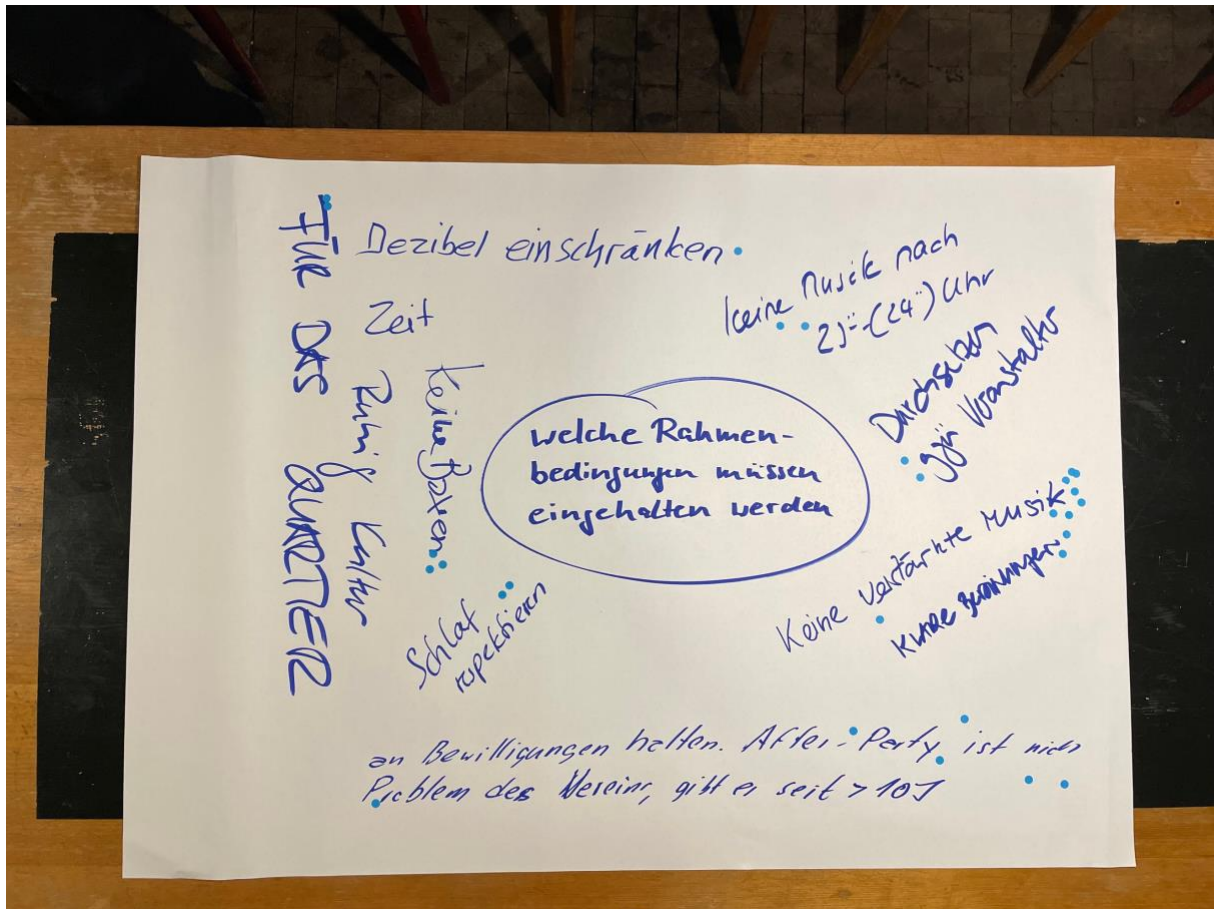 FÜR DAS QUARTIER
Dezibel einschränken
Zeit
Ruhig Kultur
Keine Boxen
Schlaf
respektieren
welche Rahmen-
bedingungen müssen
eingehalten werden
keine Musik nach
(24°°) Uhr
Durchsetzen
Veranstalter
Keine verstärkte Musik
an Bewilligungen halten. After-Party ist nicht
Problem des Vereins, gibt es seit > 10J